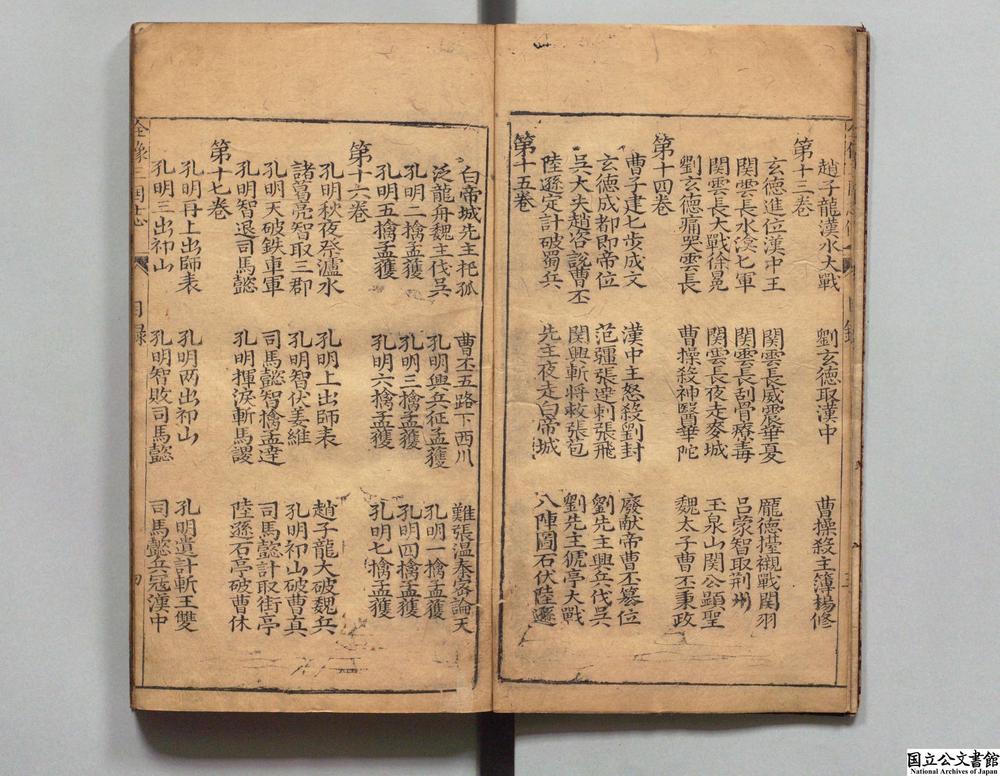 趙子龍漢水大戰 劉玄德取漢中 曹操殺主簿楊修
第十三卷
玄德進位漢中王 関雲長威震華夏 龐德擡櫬戰関羽
関雲長水渰七軍 関雲長刮骨療毒 呂蒙智取荆州
関雲長大戰徐晃 関雲長夜走麥城 玉泉山関公顕聖
劉玄德痛哭雲長 曹操殺神醫華陀 魏太子曹丕秉政
第十四卷
曹子建七步成文 漢中王怒殺劉封 廢献帝曹丕篡位
玄德成都即帝位 范彊張達刺張飛 劉先主興兵伐吳
吳大夫趙咨說曹丕 関興斬將救張包 劉先主猇亭大戰
陸遜定計破蜀兵 先主夜走白帝城 八陣圖石伏陸遜
第十五卷
白帝城先主托孤 曹丕五路下西川 難張温秦宓論天
泛龍舟魏主伐吳 孔明興兵征孟獲 孔明一擒孟獲
孔明二擒孟獲 孔明三擒孟獲 孔明四擒孟獲
孔明五擒孟獲 孔明六擒孟獲 孔明七擒孟獲
第十六卷
孔明秋夜祭瀘水 孔明上出師表 趙子龍大破魏兵
諸葛亮智取三郡 孔明智伏姜維 孔明祁山破曹真
孔明天破鉄車軍 司馬懿智擒孟達 司馬懿計取街亭
孔明智退司馬懿 孔明揮淚斬馬謖 陸遜石亭破曹休
第十七卷
孔明再上出師表 孔明两出祁山 孔明遺計斬王雙
孔明三出祁山 孔明智敗司馬懿 司馬懿兵冦漢中
全像三国志
目録
国立公文書館
National Archives of Japan